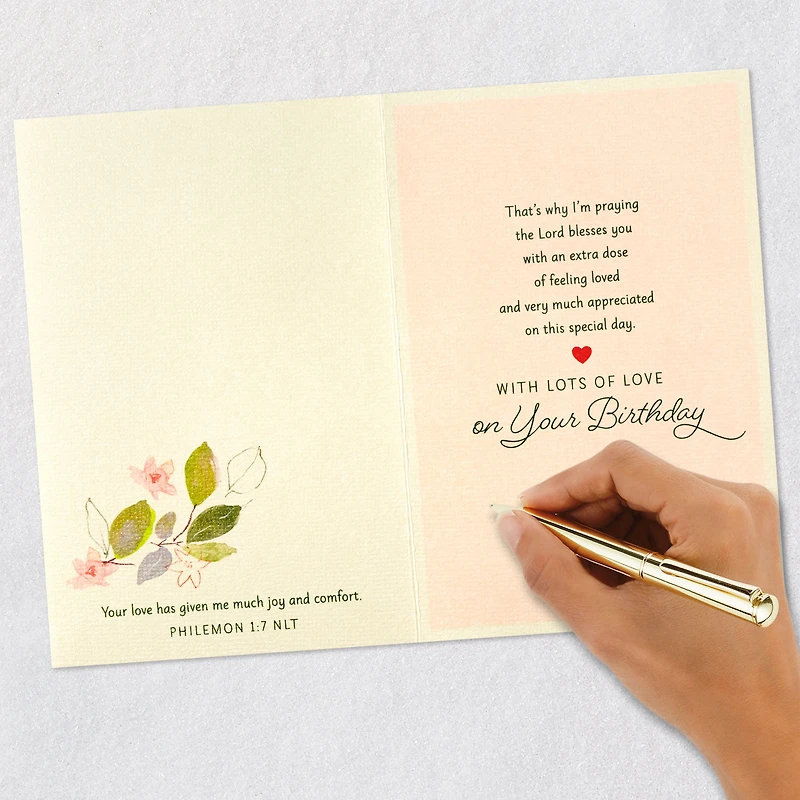 Your love has given me much joy and comfort.
PHILEMON 1:7 NLT
That's why I'm praying
the Lord blesses you
with an extra dose
of feeling loved
and very much appreciated
on this special day.
WITH LOTS OF LOVE
on Your Birthday